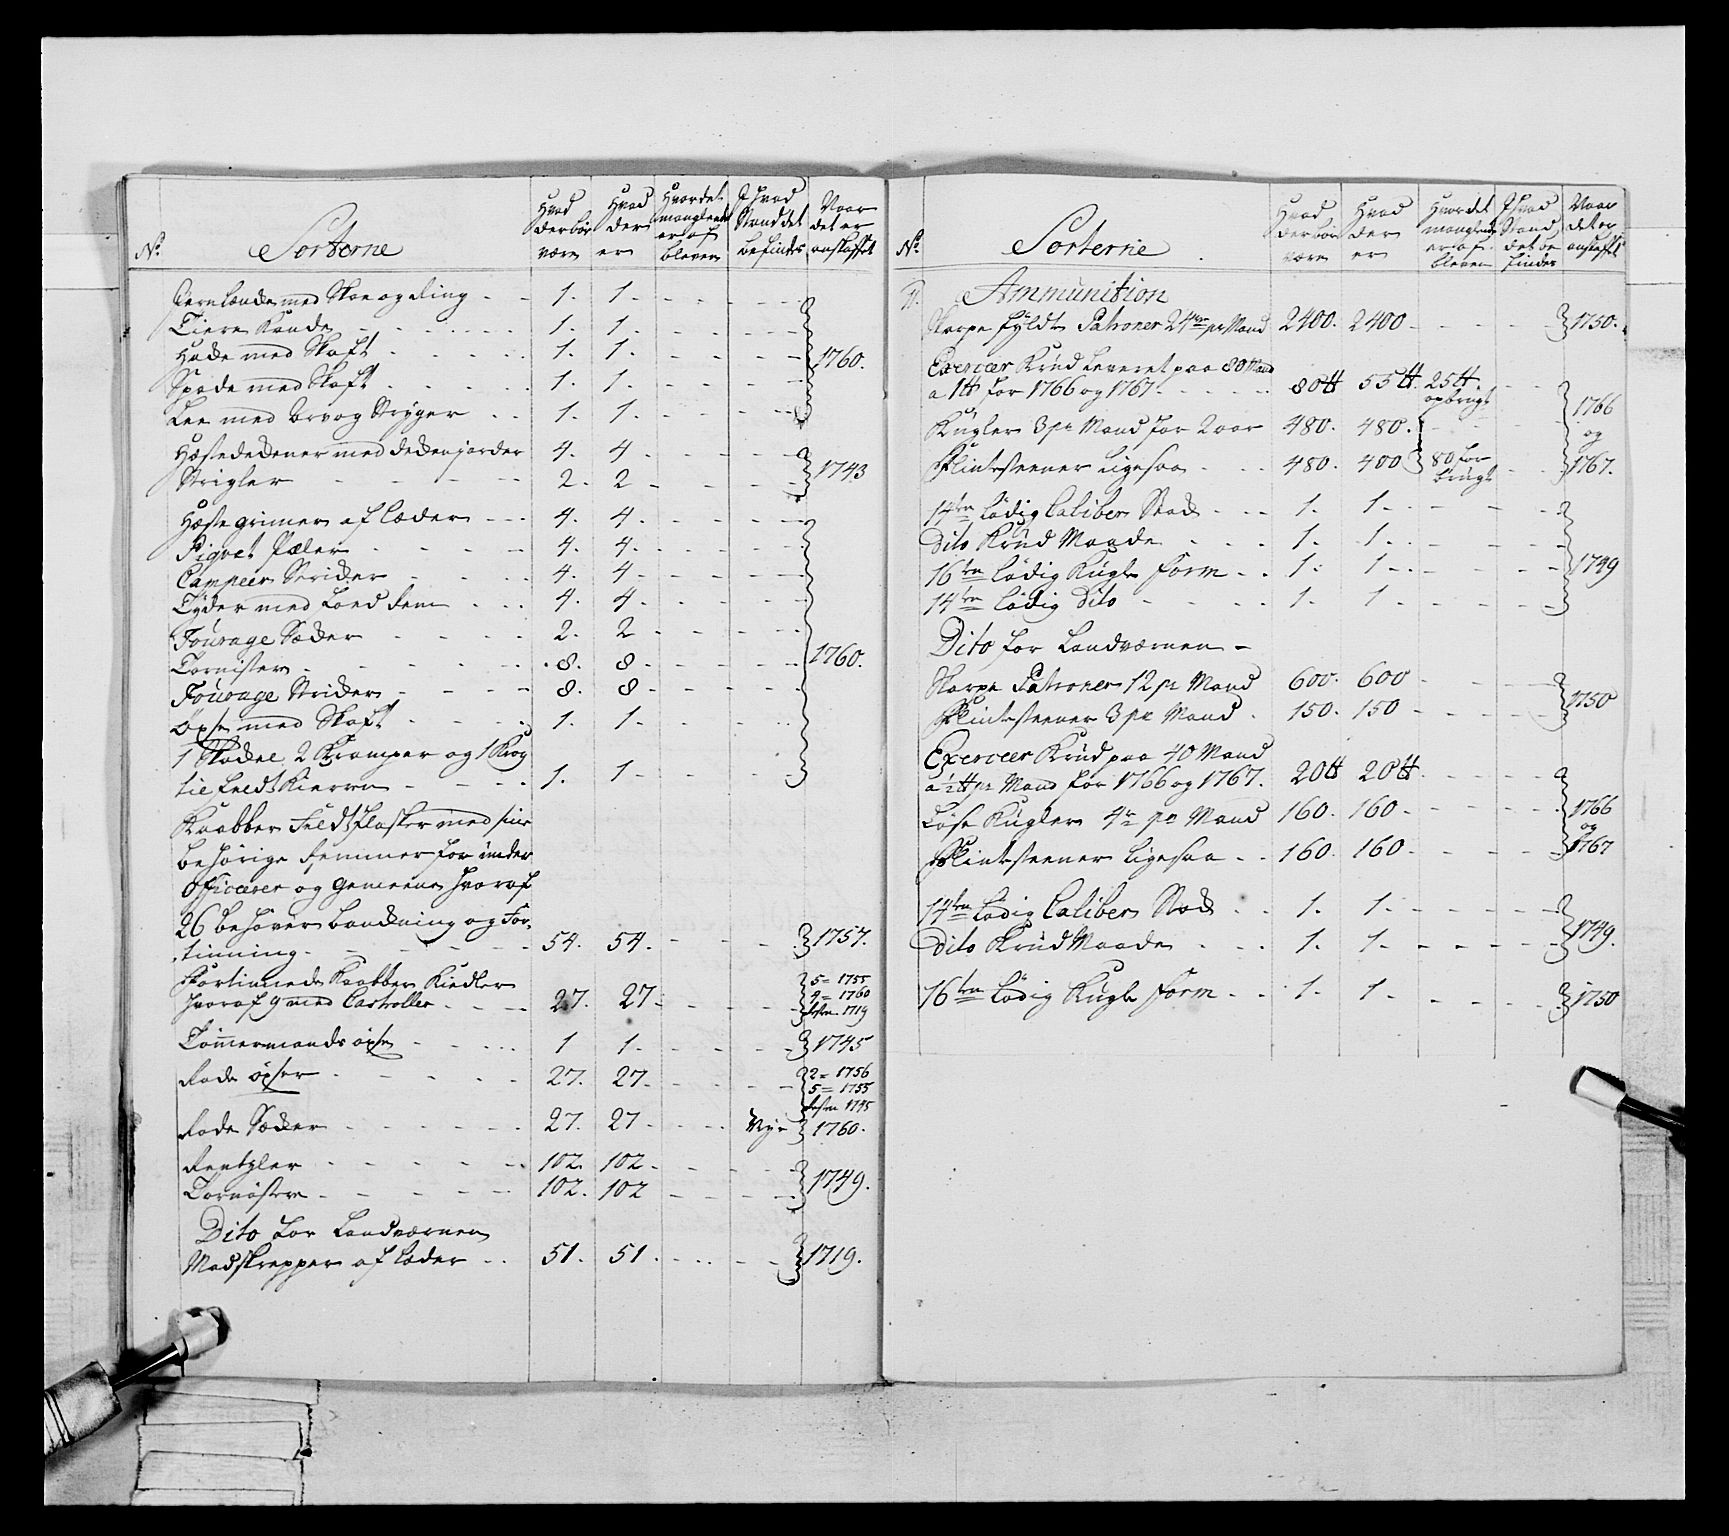 No. Sorterne Hvad der bör være Hvad der er Hvordet manglende er af bleven I hvad Stand det befindes Naar det er anskaffet
Jernlænde med Skoe og Ring - - 1. 1. - - - -
Tiere Kande - - - - 1. 1. - - - -
Hakke med Skaft - - - - 1. 1. - - - - 1760.
Spade med Skaft - - - - 1. 1. - - - -
Lee med Orv og Stryger - - 1. 1. - - - -
Hæstedekener med dekengjorder 4. 4. - - - -
Strigler - - - - 2. 2 - - - - 1743
Hæste grimer af Læder - - - 4. 4. - - - -
Piqvet Pæler - - - - 4. 4. - - - -
Campeer Strikker - - - - 4. 4. - - - -
Tyder med Loed dem - - - 4. 4. - - - -
Fourage Sække - - - - 2. 2 - - - -
Tornister - - - - 8. 8. - - - - 1760.
Fourage Strikker - - - - 8. 8. - - - -
Öxe med Skaft - - - - 1. 1. - - - -
1 Skokel 2 Kramper og 1 Krog
til Feldt Kierren - - - - 1. 1. - - - -
Kaabber Feldt Flasker med sine
behörige Remmer for under
Officerer og Gemeene hvoraf
26 behöver Londning og For-
tinning - - - - 54. 54. - - - - 1757.
Fortinnede Kaabber Kiedler 5 = 1755
hvoraf 9 med Castroller - - - 27. 27. - - - - 9 = 1760
Resten 1719
Tömmermands öxe - - - - 1 1. - - - - 1745
Rode öxer - - - - 27. 27. - - - - 2 = 1756
5 = 1755
Resten 1745
Rode Sækker - - - - 27. 27. - - - - Nye 1760.
Rentzler - - - - 102. 102. - - - -
Tornöstere - - - - 102. 102 - - - - 1749.
Dito for Landværnen
Madskrepper af Læder - - 51. 51. - - - - 1719.
No. Sorterne Hvad der bör være Hvad der er Hvordet manglende er af bleven I hvad Stand det be findes Naar det er anskaffet
Ammunition
Skarpe fyldte Patroner 24 pr Mand 2400. 2400 - - - - 1750.
Exerceer Krud Leveret paa 80 Mand
a 1 ℔ for 1766 og 1767. - - - 80 ℔ 55 ℔. 25 ℔ opbrugt - - 1766
Kugler 3 pr Mand for 2 aar 480. 480. - - - og
Flintesteener ligesaa - - - 480. 400 80 for brugt - - 1767.
14ten lödig Caliber Stok - - - 1. 1. - - - -
Dito Krud Maade - - - 1. 1. - - - -
16ten lödig Kugle Form - - 1. 1. - - - - 1749
14ten lödig Dito - - - - 1. 1. - - - -
Dito for Landværnen -
Skarpe Patroner 12 pr Mand 600. 600 - - - -
Flintesteener 3 pr Mand - 150. 150 - - - - 1750
Exerceer Krud paa 40 Mand
a ½ ℔ pr Mand for 1766 og 1767. 20 ℔ 20 ℔. - - - -
Löse Kugler 4 pr Mand 160. 160. - - - - 1766
og
Flintesteener ligesaa - - 160. 160. - - - - 1767
14ten Lödig Caliber Stok - - 1. 1. - - - -
Dito Krud Maade - - - 1. 1. - - - - 1749.
16ten Lödig Kugle Form - - 1. 1. - - - - 1750